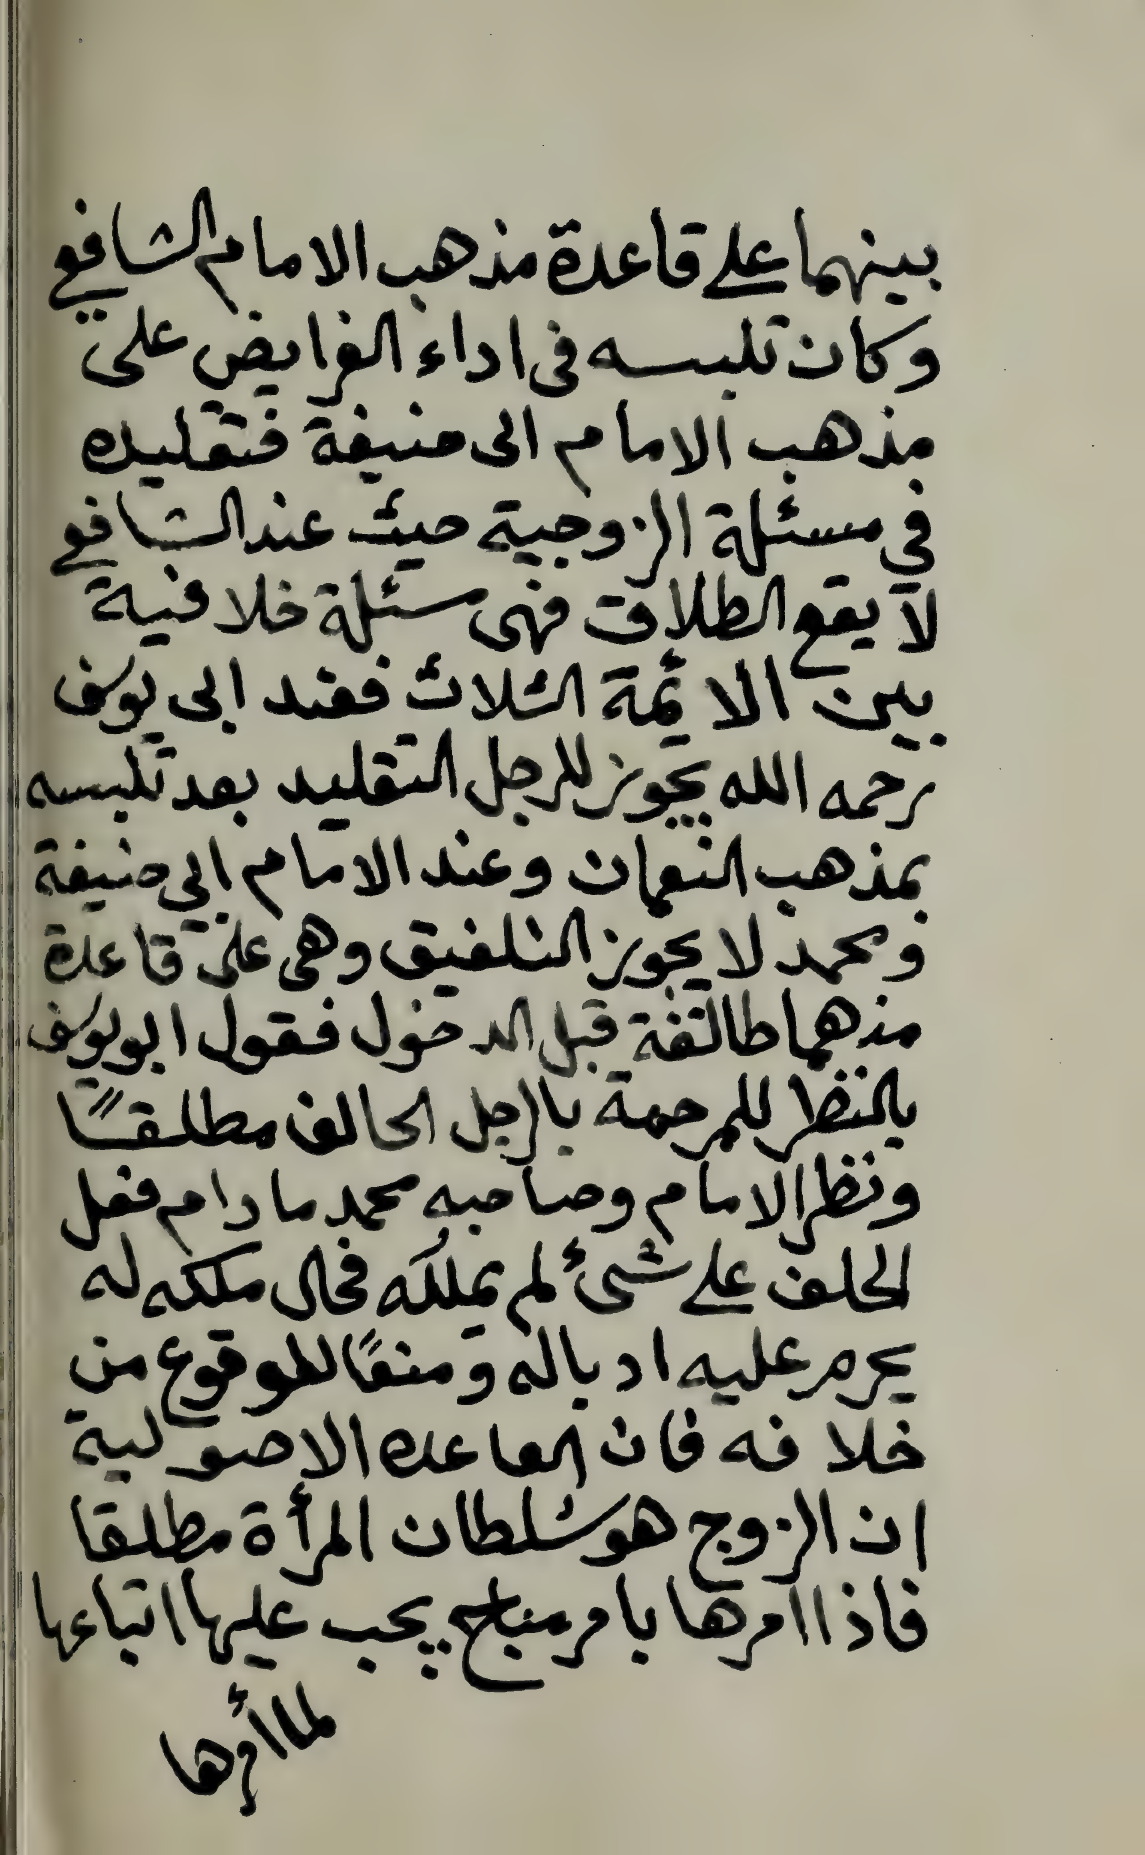 بينهما على قاعدة مذهب الامام الشافعي
وكان تلبسه في اداء الفرايض على
مذهب الامام ابى حنيفة فتقليده
في مسئلة الزوجية حيث عند الشافعي
لا يقع الطلاق فهى مسئلة خلافية
بين الائمة الثلاث فعند ابى يوسف
رحمه الله يجوز للرجل التقليد بعد تلبسه
بمذهب النعمان وعند الامام ابي حنيفة
ومحمد لا يجوز التلفيق وهى على قاعدة
مذهبهما طالقة قبل الدخول فقول ابو يوسف
بالنظر للمرحمة بالرجل الحالف مطلقًا
ونظر الامام وصاحبه محمد مادام فعل
الحلف على شئ لم يملكه فحال ملكه له
يحرم عليه ادباله ومنعًا للوقوع من
خلافه فان القاعده الاصولية
ان الزوج هو سلطان المرأة مطلقا
فاذا امرها بامر مباح يجب عليها اتباعها
لما أمرها